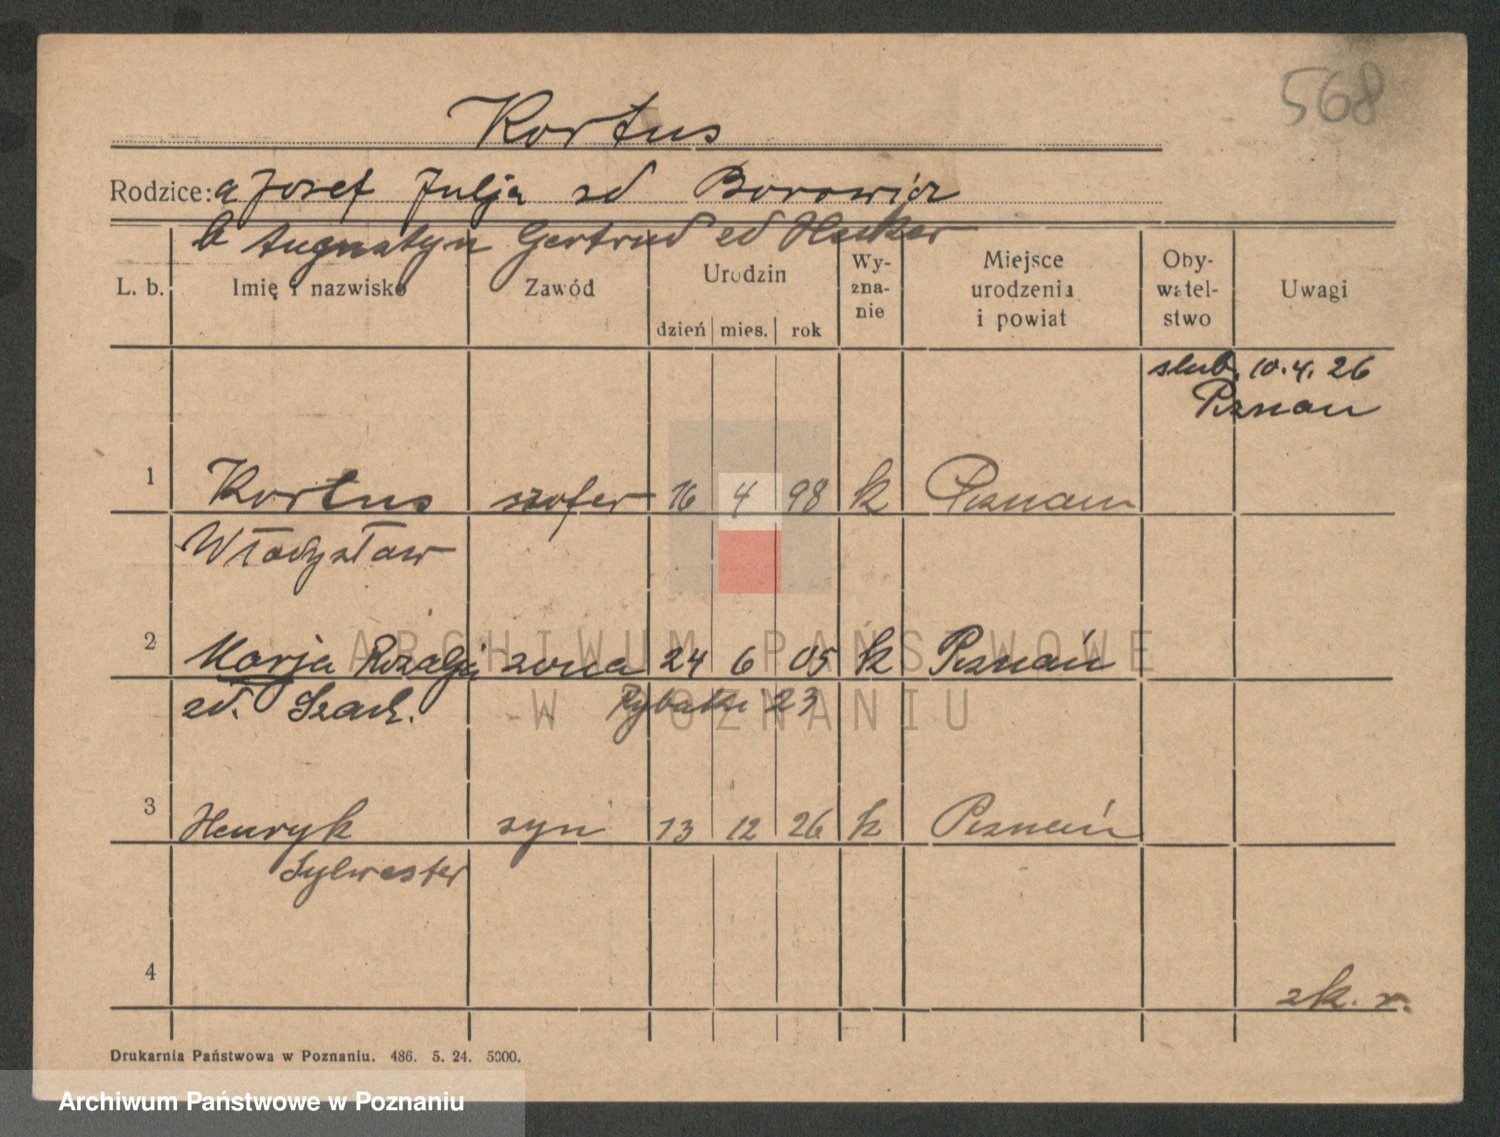 568
Kortus
Rodzice: a Josef Julja zd Borowicz
b Augustyn Gertrud zd Hecker
L. b. Imię i nazwisko Zawód Urodzin dzień mies. rok Wy-zna-nie Miejsce urodzenia i powiat Oby-watel-stwo Uwagi
slub. 10.4.26
Poznan
1 Kortus szofer 16 4 98 k Poznan
Władysław
2 Marja Rozalja zona 24 6 05 k Poznań
zd. Szach. Rybaki 23
3 Henryk syn 13 12 26 k Poznań
Sylwester
4
zk. r.
Drukarnia Państwowa w Poznaniu. 486. 5. 24. 5000.
ARCHIWUM PAŃSTWOWE
W POZNANIU
Archiwum Państwowe w Poznaniu